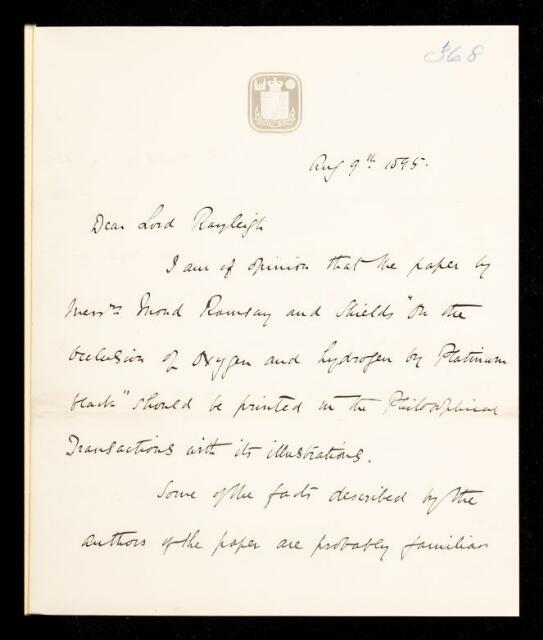 368
Aug 9th 1895.
Dear Lord Rayleigh
I am of opinion that the paper by
Messrs Mond Ramsay and Shields "On the
Occlusion of Oxygen and hydrogen by Platinum
black" should be printed in the Philosophical
Transactions with its illustrations.
Some of the facts described by the
authors of the paper are probably familiar